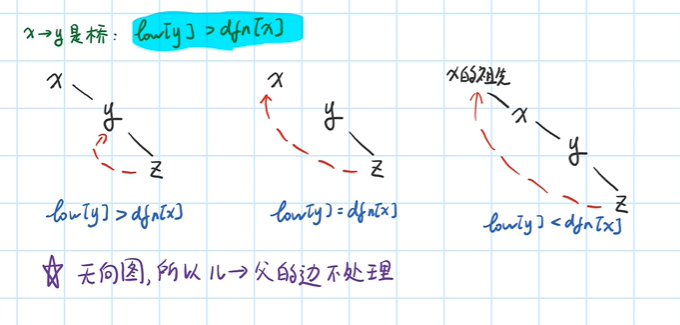 x→y是桥: low[y] > dfn[x]
x
y
z
low[y] > dfn[x]
x
y
z
low[y] = dfn[x]
x的祖先
x
y
z
low[y] < dfn[x]
☆ 无向图,所以儿→父的边不处理